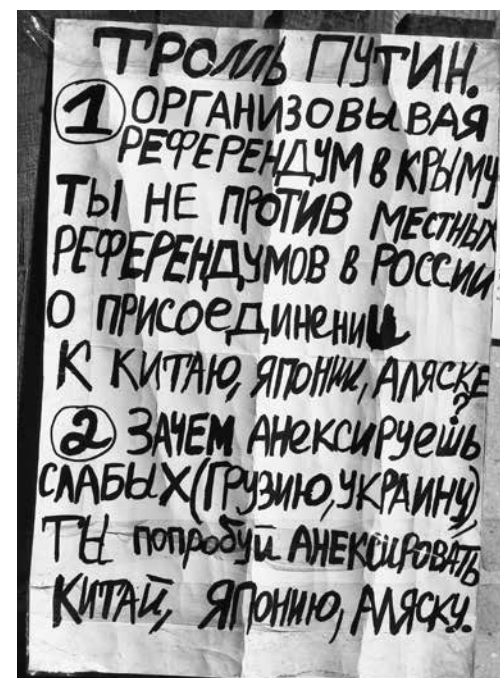 ТРОЛЛЬ ПУТИН.
1 ОРГАНИЗОВЫВАЯ
РЕФЕРЕНДУМ В КРЫМУ
ТЫ НЕ ПРОТИВ МЕСТНЫХ
РЕФЕРЕНДУМОВ В РОССИИ
О ПРИСОЕДИНЕНИИ
К КИТАЮ, ЯПОНИИ, АЛЯСКЕ
?
2 ЗАЧЕМ АНЕКСИРУЕШЬ
СЛАБЫХ (ГРУЗИЮ, УКРАИНУ),
ТЫ ПОПРОБУЙ АНЕКСИРОВАТЬ
КИТАЙ, ЯПОНИЮ, АЛЯСКУ.